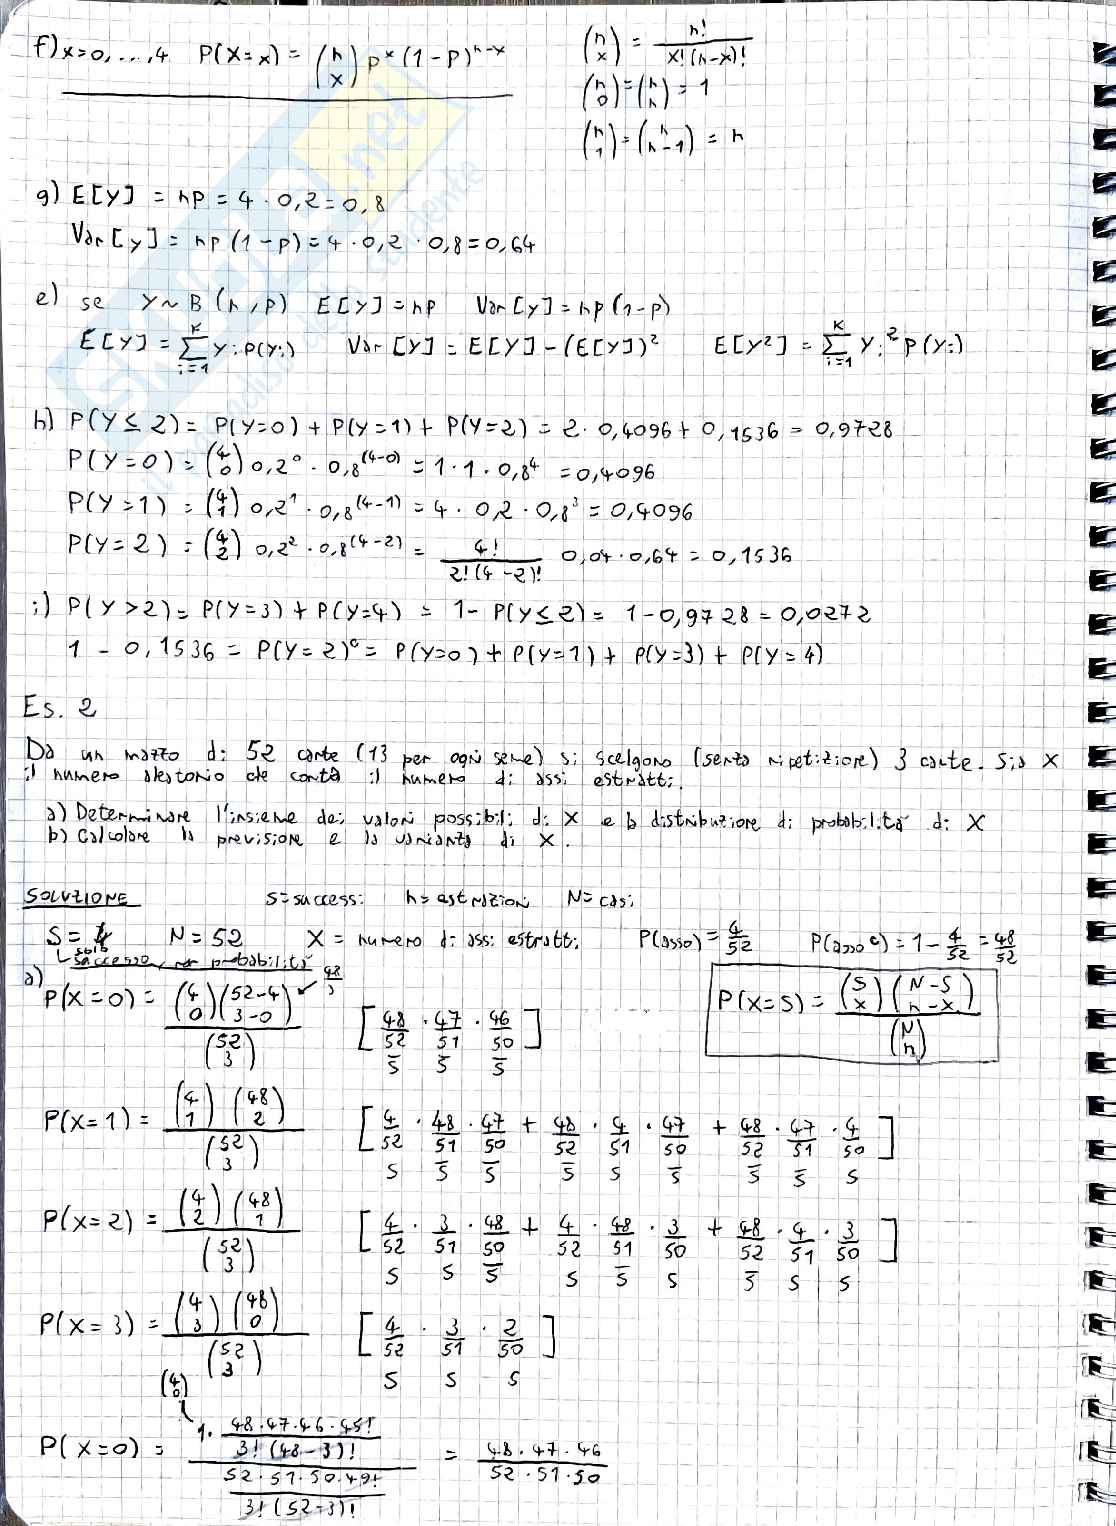 f) x=0,...,4 P(X=x) = (n x) p^x (1-p)^n-x
(n x) = n! / x!(n-x)!
(n 0) = (n n) = 1
(n 1) = (n n-1) = n
g) E[Y] = np = 4 · 0,2 = 0,8
Var[y] = np(1-p) = 4 · 0,2 · 0,8 = 0,64
e) se Y~B(n,p) E[Y]=np Var[Y]=np(1-p)
E[Y] = Σ_{i=1}^{K} Yi P(Yi) Var[Y] = E[Y]-(E[Y])² E[Y²] = Σ_{i=1}^{K} Yi² P(Yi)
h) P(Y≤2) = P(Y=0) + P(Y=1) + P(Y=2) = 2 · 0,4096 + 0,1536 = 0,9728
P(Y=0) = (4 0) 0,2⁰ · 0,8^(4-0) = 1·1·0,8⁴ = 0,4096
P(Y=1) = (4 1) 0,2¹ · 0,8^(4-1) = 4 · 0,2 · 0,8³ = 0,4096
P(Y=2) = (4 2) 0,2² · 0,8^(4-2) = 4! / 2!(4-2)! 0,04·0,64 = 0,1536
i) P(Y>2) = P(Y=3) + P(Y=4) = 1- P(Y≤2) = 1-0,9728 = 0,0272
1 - 0,1536 = P(Y=2)^c = P(Y=0) + P(Y=1) + P(Y=3) + P(Y=4)
Es. 2
Da un mazzo di 52 carte (13 per ogni seme) si scelgono (senza ripetizione) 3 carte. Sia X
il numero aleatorio che conta il numero di assi estratti.
a) Determinare l'insieme dei valori possibili di X e la distribuzione di probabilità di X
b) Calcolare la previsione e la varianza di X.
SOLUZIONE s=successi n=estrazioni N=casi
S=4 N=52 X = numero di assi estratti P(asso) = 4/52 P(asso^c) = 1 - 4/52 = 48/52
solo
successo, non probabilità
a) P(X=0) = (4 0)(52-4 3-0) / (52 3) 48 3 [48/52 · 47/51 · 46/50]
s̄ s̄ s̄
P(X=S) = (S x)(N-S n-x) / (N n)
P(X=1) = (4 1)(48 2) / (52 3) [4/52 · 48/51 · 47/50 + 48/52 · 4/51 · 47/50 + 48/52 · 47/51 · 4/50]
s s̄ s̄ s̄ s s̄ s̄ s̄ s
P(X=2) = (4 2)(48 1) / (52 3) [4/52 · 3/51 · 48/50 + 4/52 · 48/51 · 3/50 + 48/52 · 4/51 · 3/50]
s s s̄ s s̄ s s̄ s s
P(X=3) = (4 3)(48 0) / (52 3) [4/52 · 3/51 · 2/50]
s s s
(4 0)
P(X=0) = 1 · 48·47·46·45! / 3!(48-3)! / 52·51·50·49! / 3!(52-3)! = 48·47·46 / 52·51·50